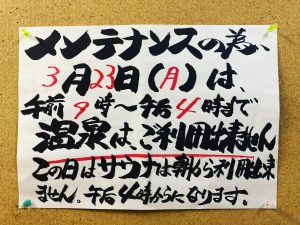 メンテナンスの為、
3月23日(月)は、
午前9時～午后4時まで
温泉は、ご利用出来ません
この日はサウナは朝から利用出来
ません。午后4時からになります。